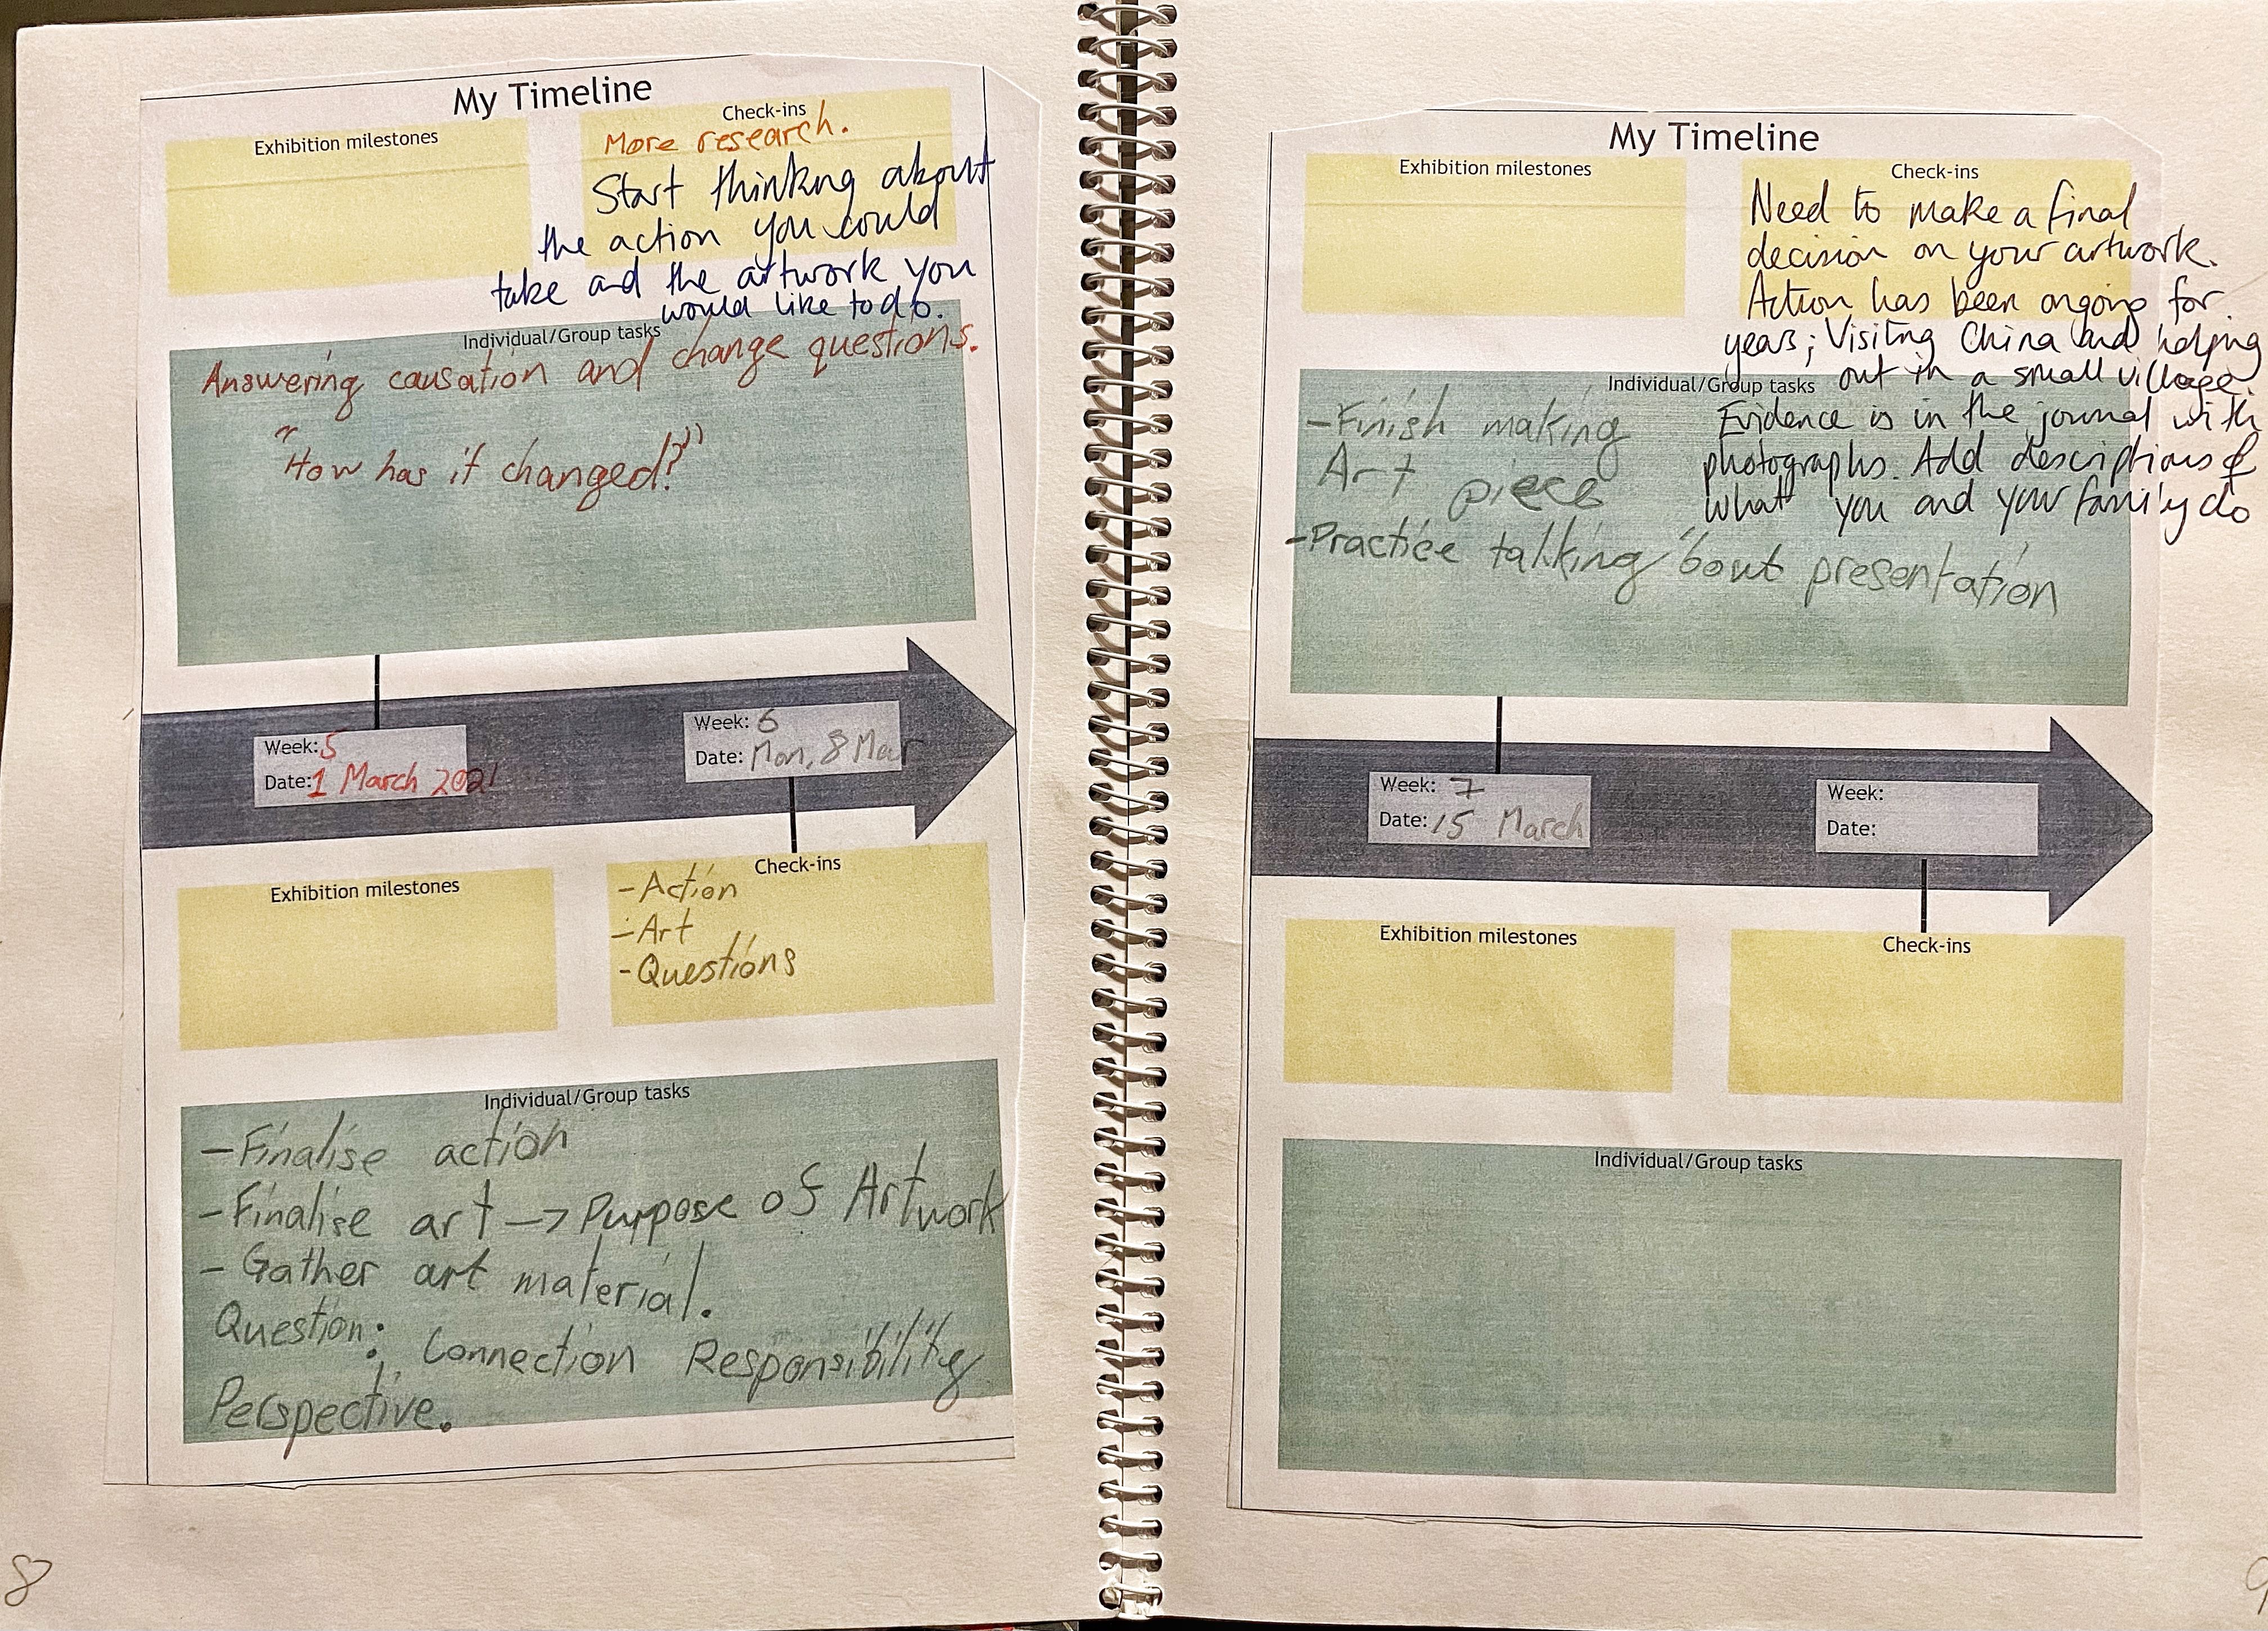 My Timeline
Exhibition milestones
Check-ins
More research.
Start thinking about
the action you could
take and the artwork you
would like to do.
Individual/Group tasks
Answering causation and change questions.
"How has it changed?"
Week: 5
Date: 1 March 2021
Week: 6
Date: Mon, 8 Mar
Exhibition milestones
Check-ins
-Action
-Art
-Questions
Individual/Group tasks
-Finalise action
-Finalise art -> Purpose of Artwork
- Gather art material.
Question: Connection Responsibility
Perspective.
8
My Timeline
Exhibition milestones
Check-ins
Need to make a final
decision on your artwork.
Action has been ongoing for
years; Visiting China and helping
out in a small village.
Evidence is in the journal with
photographs. Add descriptions of
what you and your family do
Individual/Group tasks
-Finish making
Art piece
-Practice talking 'bout presentation
Week: 7
Date: 15 March
Week:
Date:
Exhibition milestones
Check-ins
Individual/Group tasks
9